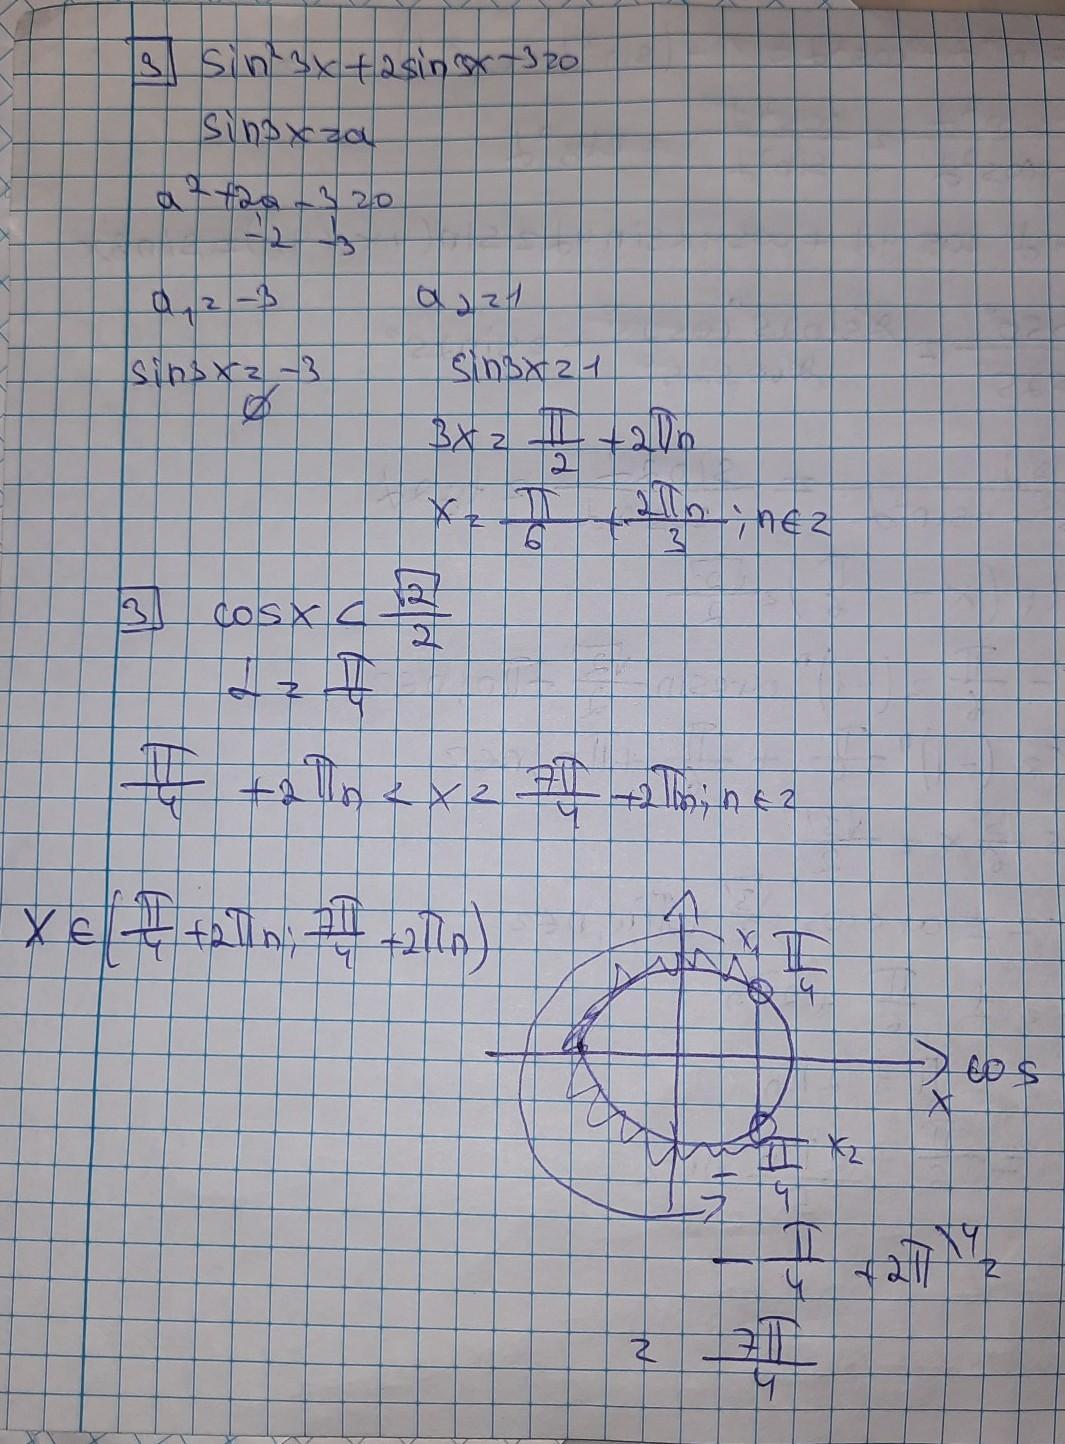 3 sin²3x+2sin3x-3=0
sin3x=a
a²+2a-3=0
-2 -3
a₁=-3 a₂=1
sin3x=-3 sin3x=1
∅
3x=π/2+2πn
x=π/6+2πn/3; n∈z
3 cosx<√2/2
α=π/4
π/4+2πn<x<7π/4+2πn; n∈z
x∈(π/4+2πn; 7π/4+2πn)
x₁ π/4
cos
x
x₂
-π/4
-π/4+2π\4=
=7π/4